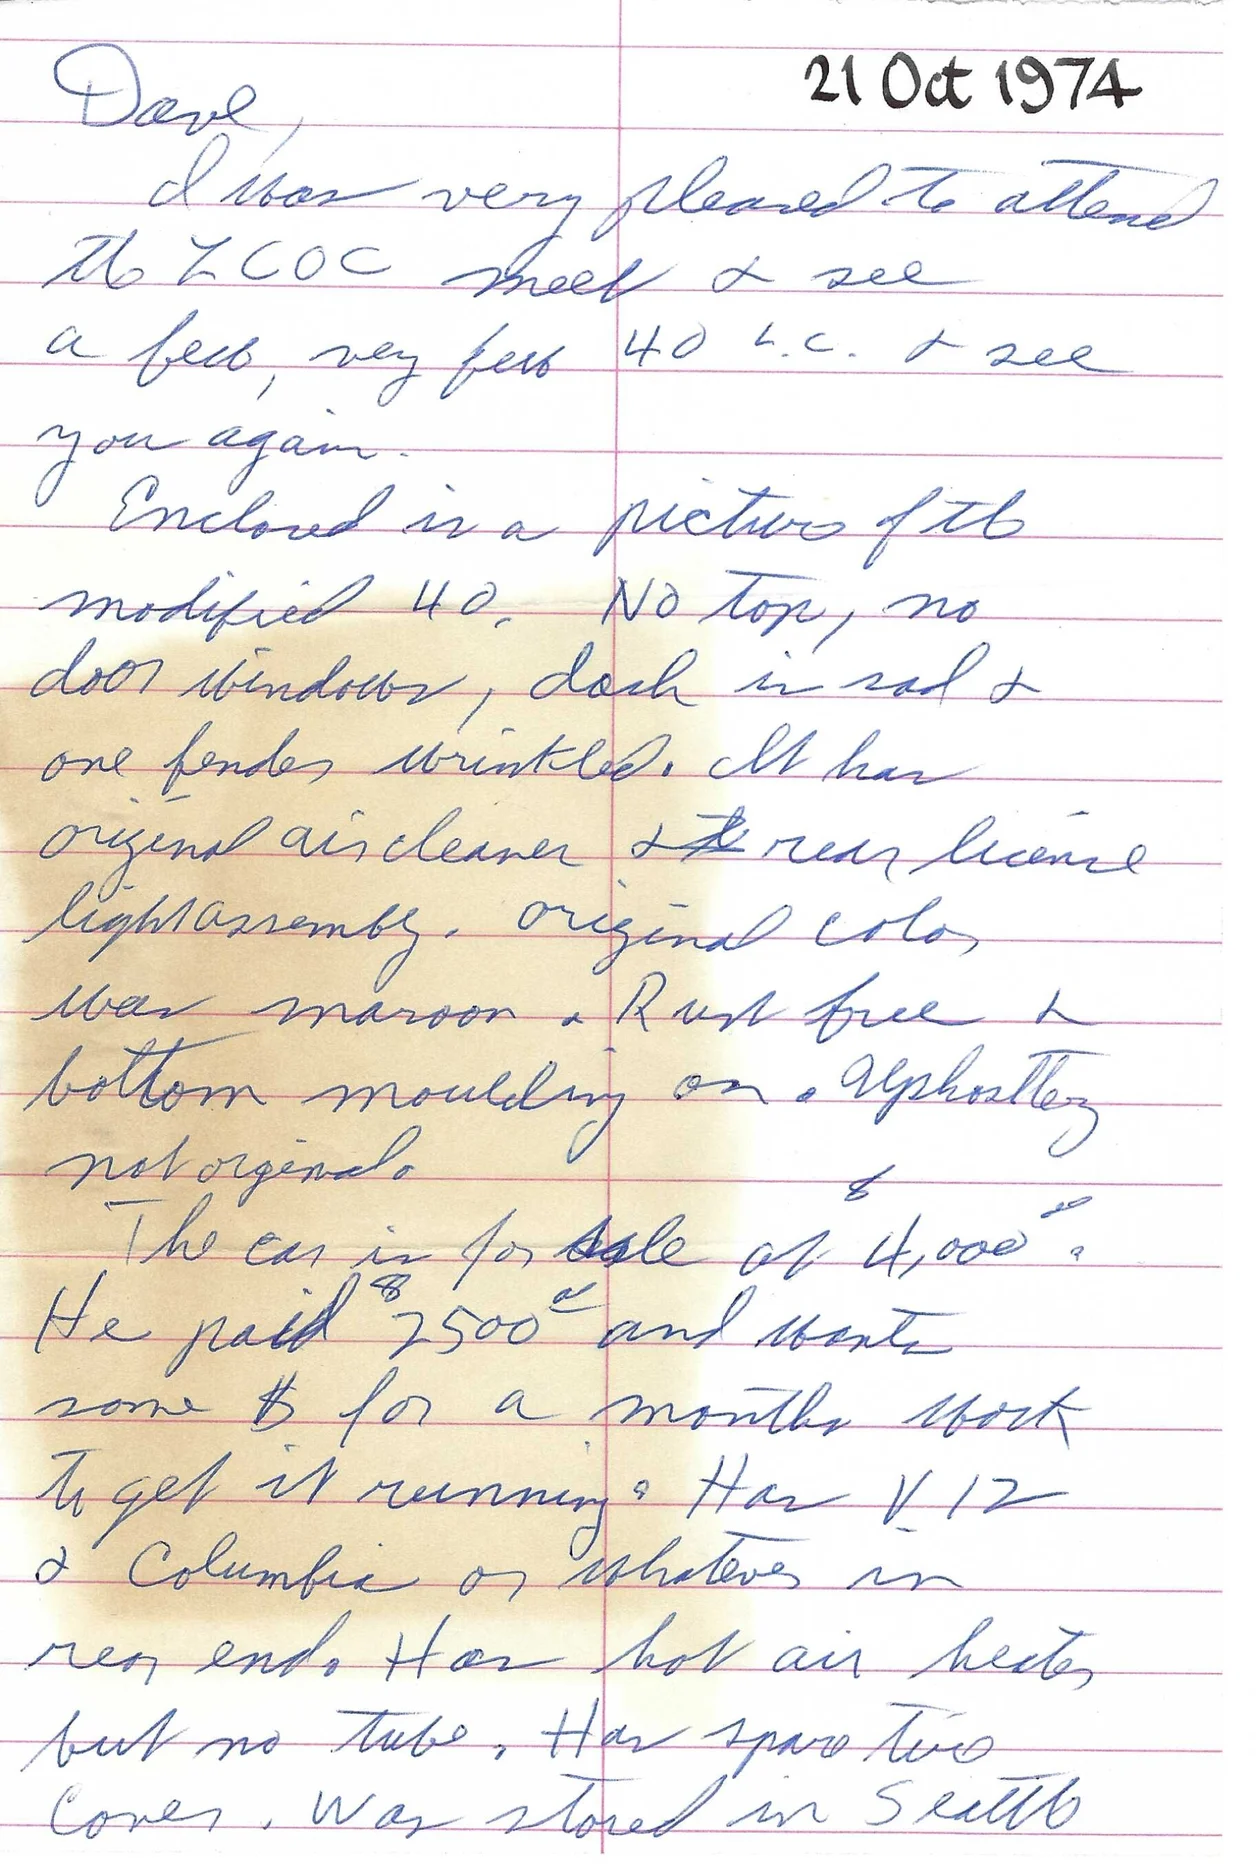 21 Oct 1974
Dave,
I was very pleased to attend
the LCOC meet & see
a few, very few 40 L.C. & see
you again.
Enclosed is a picture of the
modified 40. No top, no
door windows, dash is sad &
one fender wrinkled. It has
original air cleaner & rear license
light assembly. Original color
was maroon. Rust free &
bottom moulding on. Uphostlery
not orginal.
The car is for sale at $4,000.00.
He paid $2500.00 and wants
some $ for a months work
to get it running. Has V12
& Columbia or whatever in
rear end. Has hot air heater
but no tube. Has spare tire
cover. Was stored in Seattle